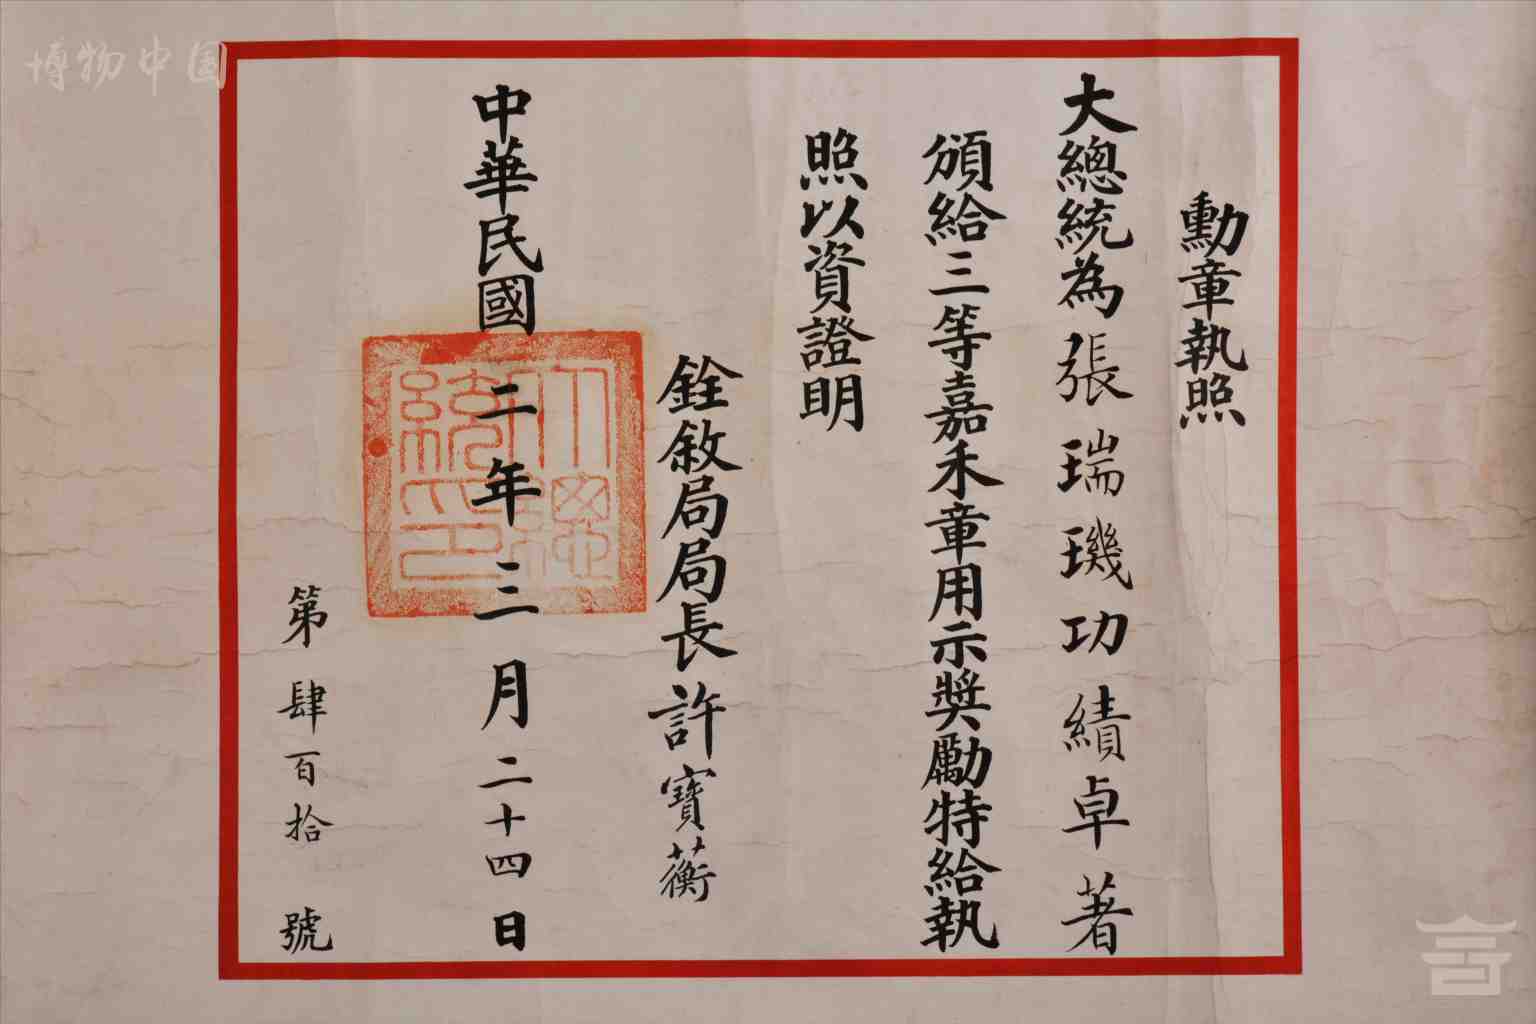 勳章執照
大總統為張瑞璣功績卓著
頒給三等嘉禾章用示獎勵特給執
照以資證明
銓敘局局長許寶蘅
中華民國二年三月二十四日
第肆百拾號
大總統印
博物中国